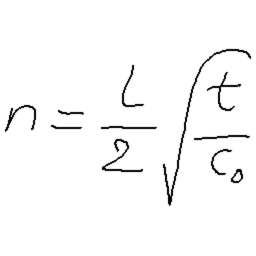 n = \frac{l}{2} \sqrt{\frac{t}{c_0}}